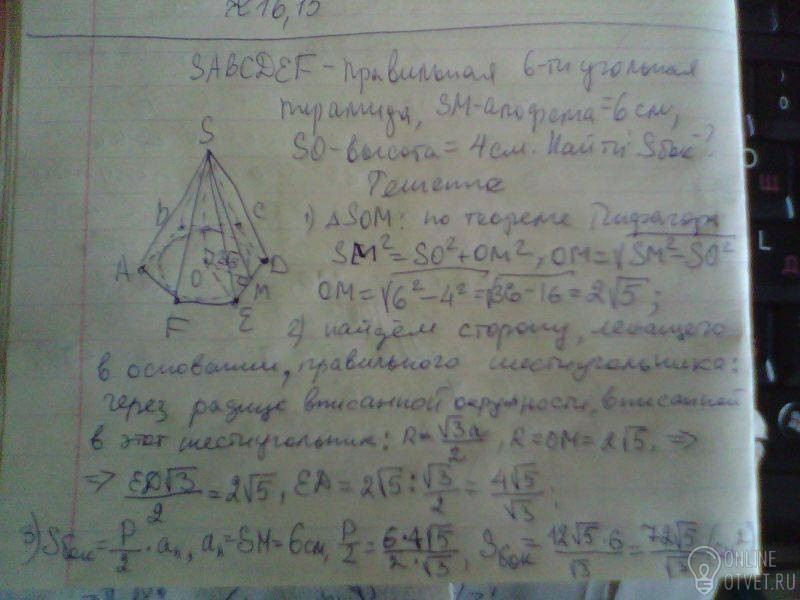 № 16,15
SABCDEF - правильная 6-ти угольная
пирамида, SM-апофема=6см,
SO-высота=4см. Найти Sбок-?
Решение
1) ΔSOM: по теореме Пифагора
SM²=SO²+OM², OM=√SM²-SO²
OM=√6²-4²=√36-16=2√5;
2) найдём сторону, лежащего
в основании, правильного шестиугольника:
через радиус вписанной окружности, вписанной
в этот шестиугольник: R=√3a/2, R=OM=2√5. =>
=> ED√3/2=2√5, ED=2√5:√3/2=4√5/√3;
3) Sбок=P/2·aₙ, aₙ=SM=6см, P/2=6·4√5/2·√3, Sбок=12√5·6/√3=72√5/√3
S
C
A
D
O
M
F
E
ONLINE
OTVET.RU